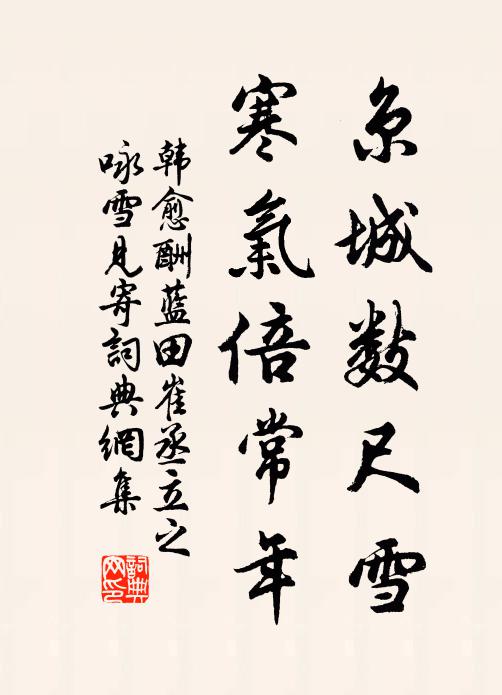 京城數尺雪
寒氣倍常年
韩愈酬蓝田崔丞立之
咏雪見寄詞典網集
詞典
网印